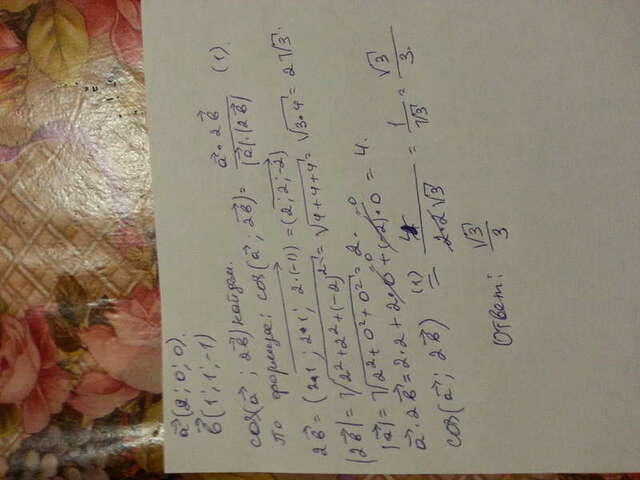 a⃗(2; 0; 0).
b⃗(1; 1; -1)
cos(a⃗; 2b⃗) найдем
по формуле: cos(a⃗; 2b⃗) = a⃗·2b⃗ / |a⃗|·|2b⃗| (1).
2b⃗ = (2·1; 2·1; 2·(-1)) = (2; 2; -2)
|2b⃗| = √2²+2²+(-2)² = √4+4+4 = √3·4 = 2√3.
|a⃗| = √2²+0²+0² = 2.
a⃗·2b⃗ = 2·2+2·0+(-2)·0 = 4.
cos(a⃗; 2b⃗) (1) = 4 / 2·2√3 = 1/√3 = √3/3.
Ответ: √3/3